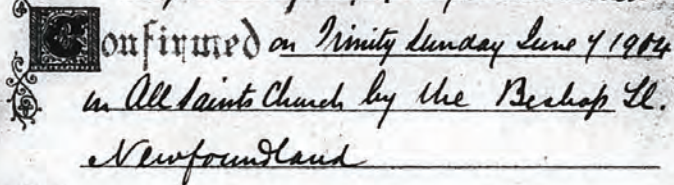 Confirmed on Trinity Sunday June 7 1904
in All Saints Church by the Bishop
Newfoundland